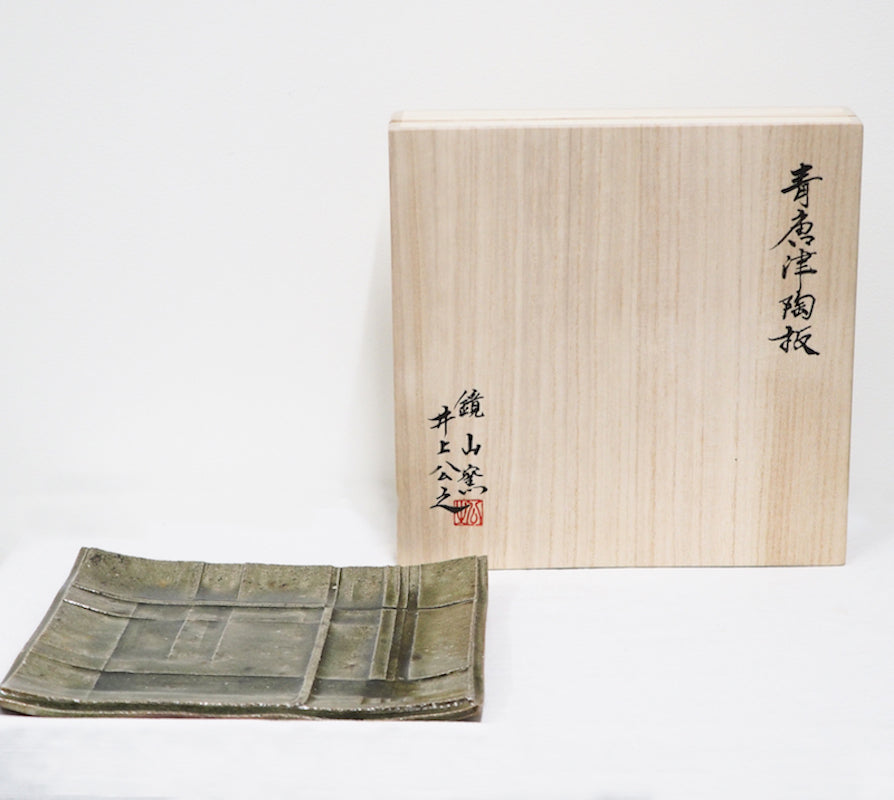 青唐津陶板
鏡山窯
井上公之